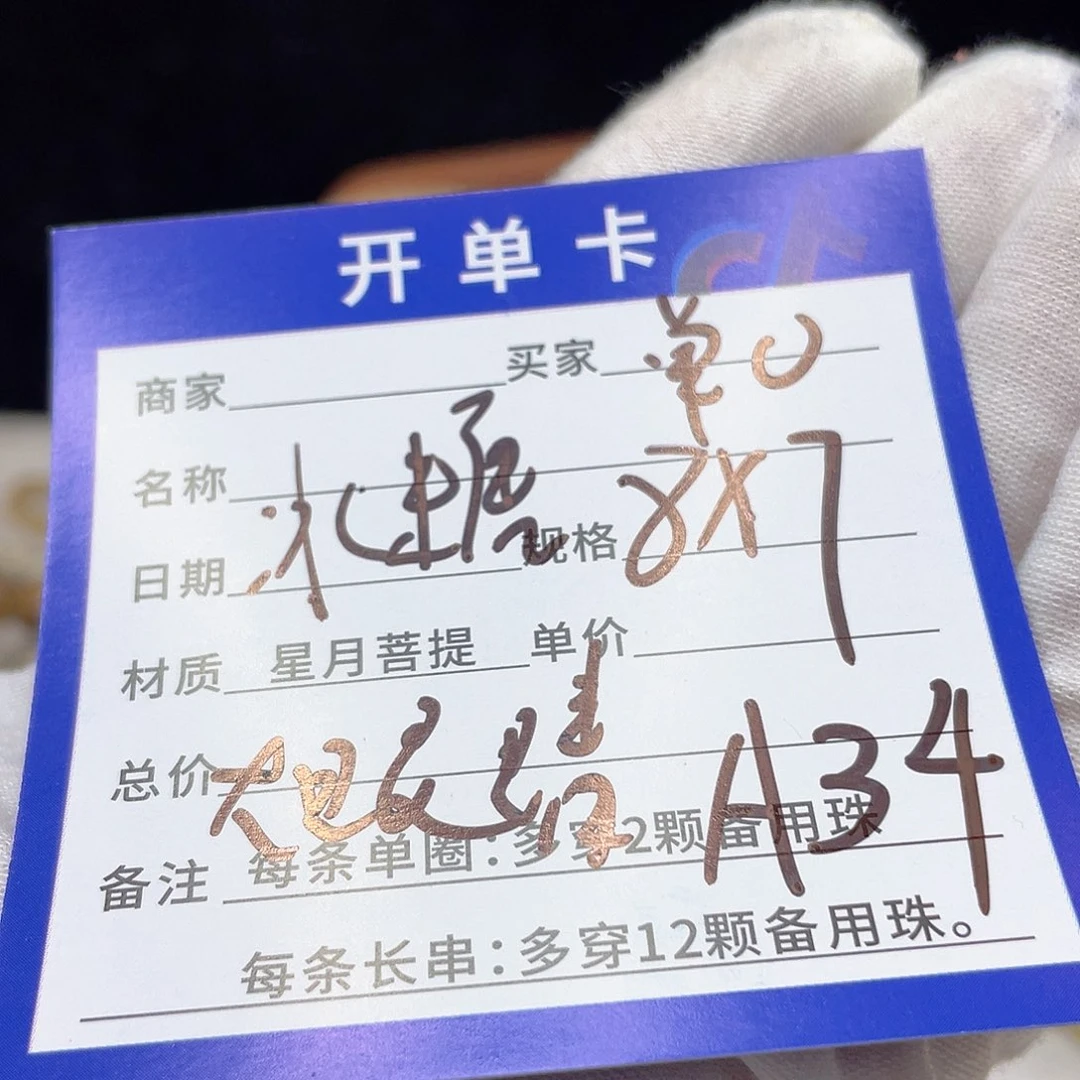 开单卡
商家 买家 单0
名称 冰糖
日期 规格 8X7
材质 星月菩提 单价
总价
A34
备注 每条单圈：多穿2颗备用珠
每条长串：多穿12颗备用珠。